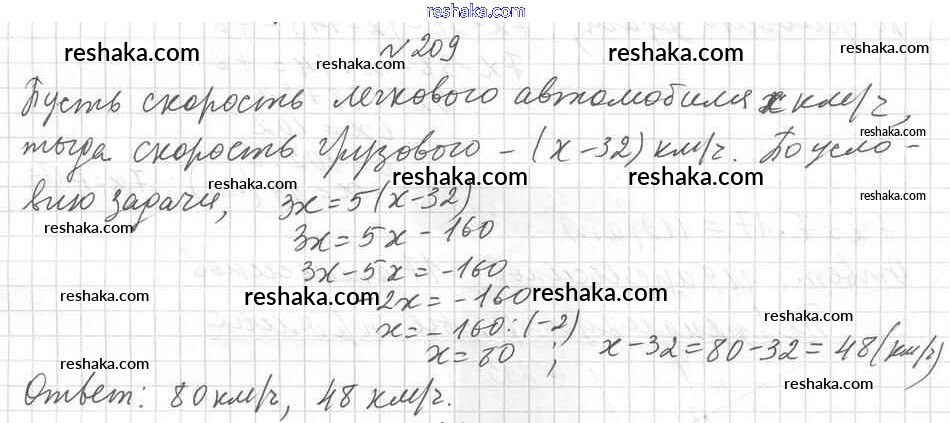 reshaka.com
№209
reshaka.com reshaka.com
reshaka.com reshaka.com
Пусть скорость легкового автомобиля x км/ч,
reshaka.com reshaka.com
reshaka.com
тогда скорость грузового – (x-32) км/ч. По усло-
reshaka.com reshaka.com reshaka.com
вию задачи, 3x=5(x-32)
reshaka.com
3x=5x-160
3x-5x=-160
reshaka.com reshaka.com reshaka.com reshaka.com
-2x=-160
x=-160:(-2)
reshaka.com
x=80 ; x-32=80-32=48(км/ч)
reshaka.com reshaka.com
Ответ: 80 км/ч, 48 км/ч.